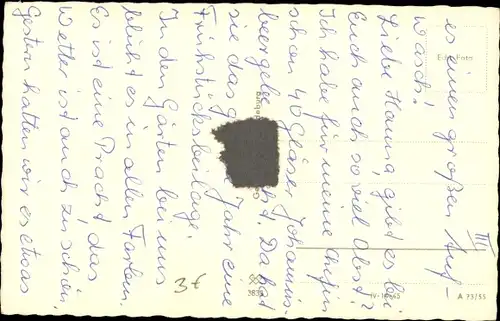 es einen großen Auf-
wasch!
Liebe Hanna, gibt es bei
Euch auch so viel Obst?
Ich habe für meine Chefin
schon 40 Gläser Johannis-
beergelee Da hat
sie das Jahr eine
Frühstücksbeilage.
In den Gärten bei uns
blüht es in allen Farben.
Es ist eine Pracht, das
Wetter ist auch zu schön.
Gestern hatten wir es etwas
III
3 €
A 73/55